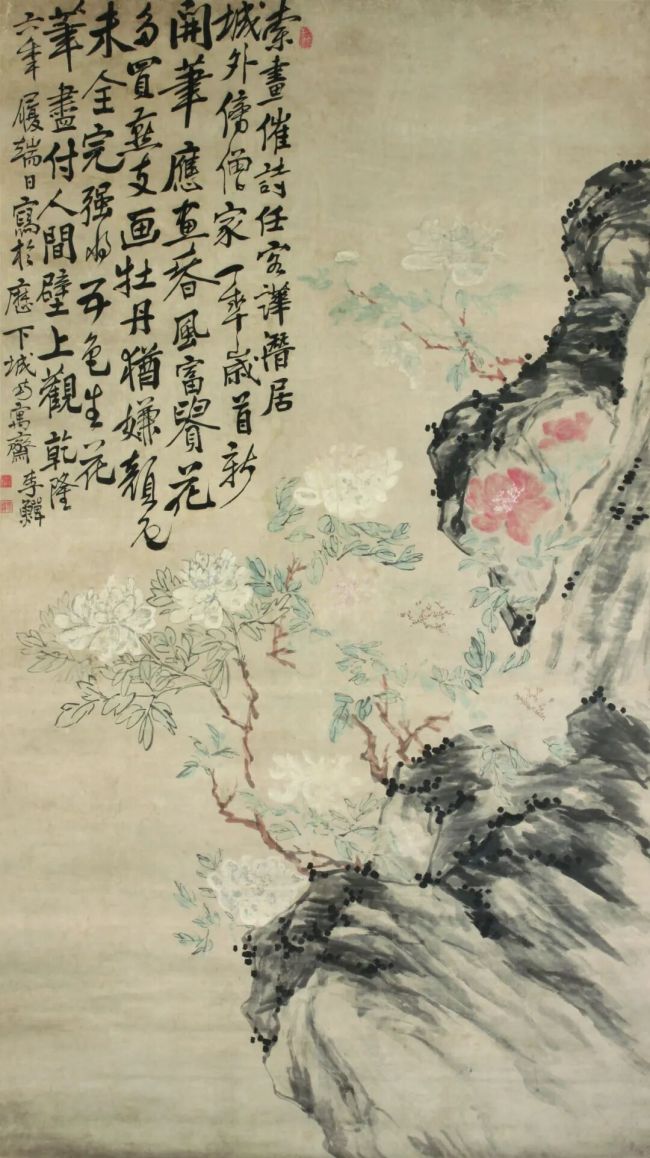 索畫催詩任客譁潛居
城外傍僧家一年歲首新
開筆應畫春風富貴花
多買燕支画牡丹猶嫌顏色
未全完强將五色生花
筆盡付人間壁上觀乾隆
六年履端日寫於歷下城寓齋李鱓